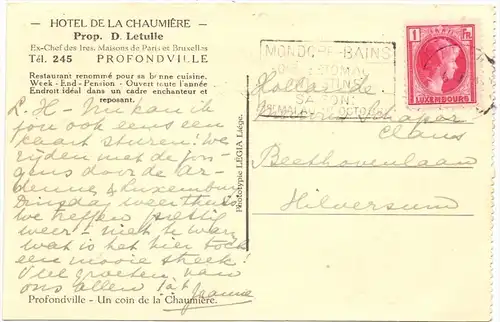 — HOTEL DE LA CHAUMIÈRE —
Prop. D. Letulle
Ex-Chef des Ires. Maisons de Paris et Bruxelles
Tél. 245 PROFONDVILLE
Restaurant renommé pour sa bonne cuisine,
Week - End - Pension - Ouvert toute l'année
Endroit idéal dans un cadre enchanteur et
reposant.
L. H- Nu kan ik
jou ook eens een
kaart sturen! We
rijden met de jon-
gens door de Ar-
denne & Luxemburg
Dinsdag weer thuis
We treffen prettig
weer - niet te warm
wat is het hier toch
een mooie streek!
Veel groeten van
ons allen
Jeanne
Profondville - Un coin de la Chaumière.
Phototypie LÉGIA Liége.
MONDORF-BAINS
SAISON
MAI OCTOBRE
1 Fr.
LUXEMBOURG
Hollande
Claus
Beethovenlaan
Hilversum